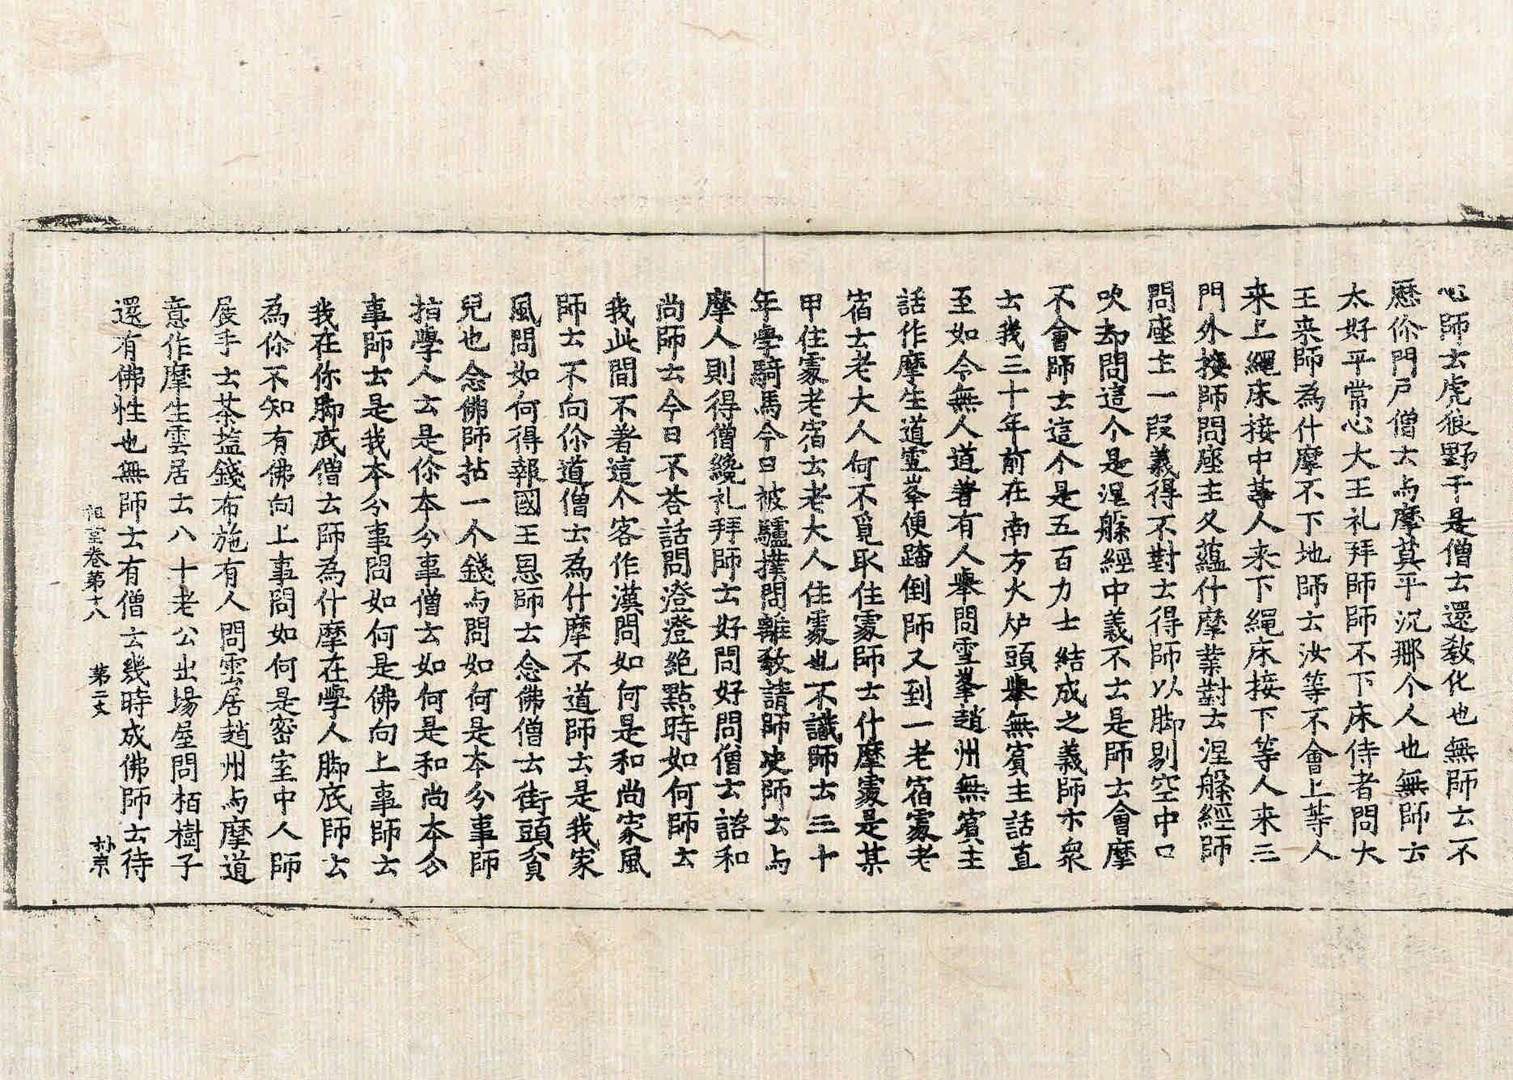 心師云虎狼野干是僧云還教化也無師云不
歷你門戶僧云与摩莫平沉那个人也無師云
太好平常心大王礼拜師師不下床侍者問大
王来師為什摩不下地師云汝等不會上等人
来上繩床接中等人来下繩床接下等人来三
門外接師問座主久蘊什摩業對云涅槃經師
問座主一段義得不對云得師以脚剔空中口
吹却問這个是涅槃經中義不云是師云會摩
不會師云這个是五百力士結成之義師示衆
云我三十年前在南方火炉頭舉無賓主話直
至如今無人道著有人舉問雪峯趙州無賓主
話作摩生道雪峯便踏倒師又到一老宿處老
宿云老大人何不覓取住處師云什摩處是某
甲住處老宿云老大人住處也不識師云三十
年學騎馬今日被驢撲問離教請師决師云与
摩人則得僧纔礼拜師云好問好問僧云諮和
尚師云今日不荅話問澄澄絶點時如何師云
我此間不著這个客作漢問如何是和尚家風
師云不向你道僧云為什摩不道師云是我家
風問如何得報國王恩師云念佛僧云街頭貧
兒也念佛師拈一个錢与問如何是本分事師
指學人云是你本分事僧云如何是和尚本分
事師云是我本分事問如何是佛向上事師云
我在你脚底僧云師為什摩在學人脚底師云
為你不知有佛向上事問如何是密室中人師
展手云茶塩錢布施有人問雲居趙州与摩道
意作摩生雲居云八十老公出場屋問栢樹子
還有佛性也無師云有僧云幾時成佛師云待
祖堂卷第十八 第二丈